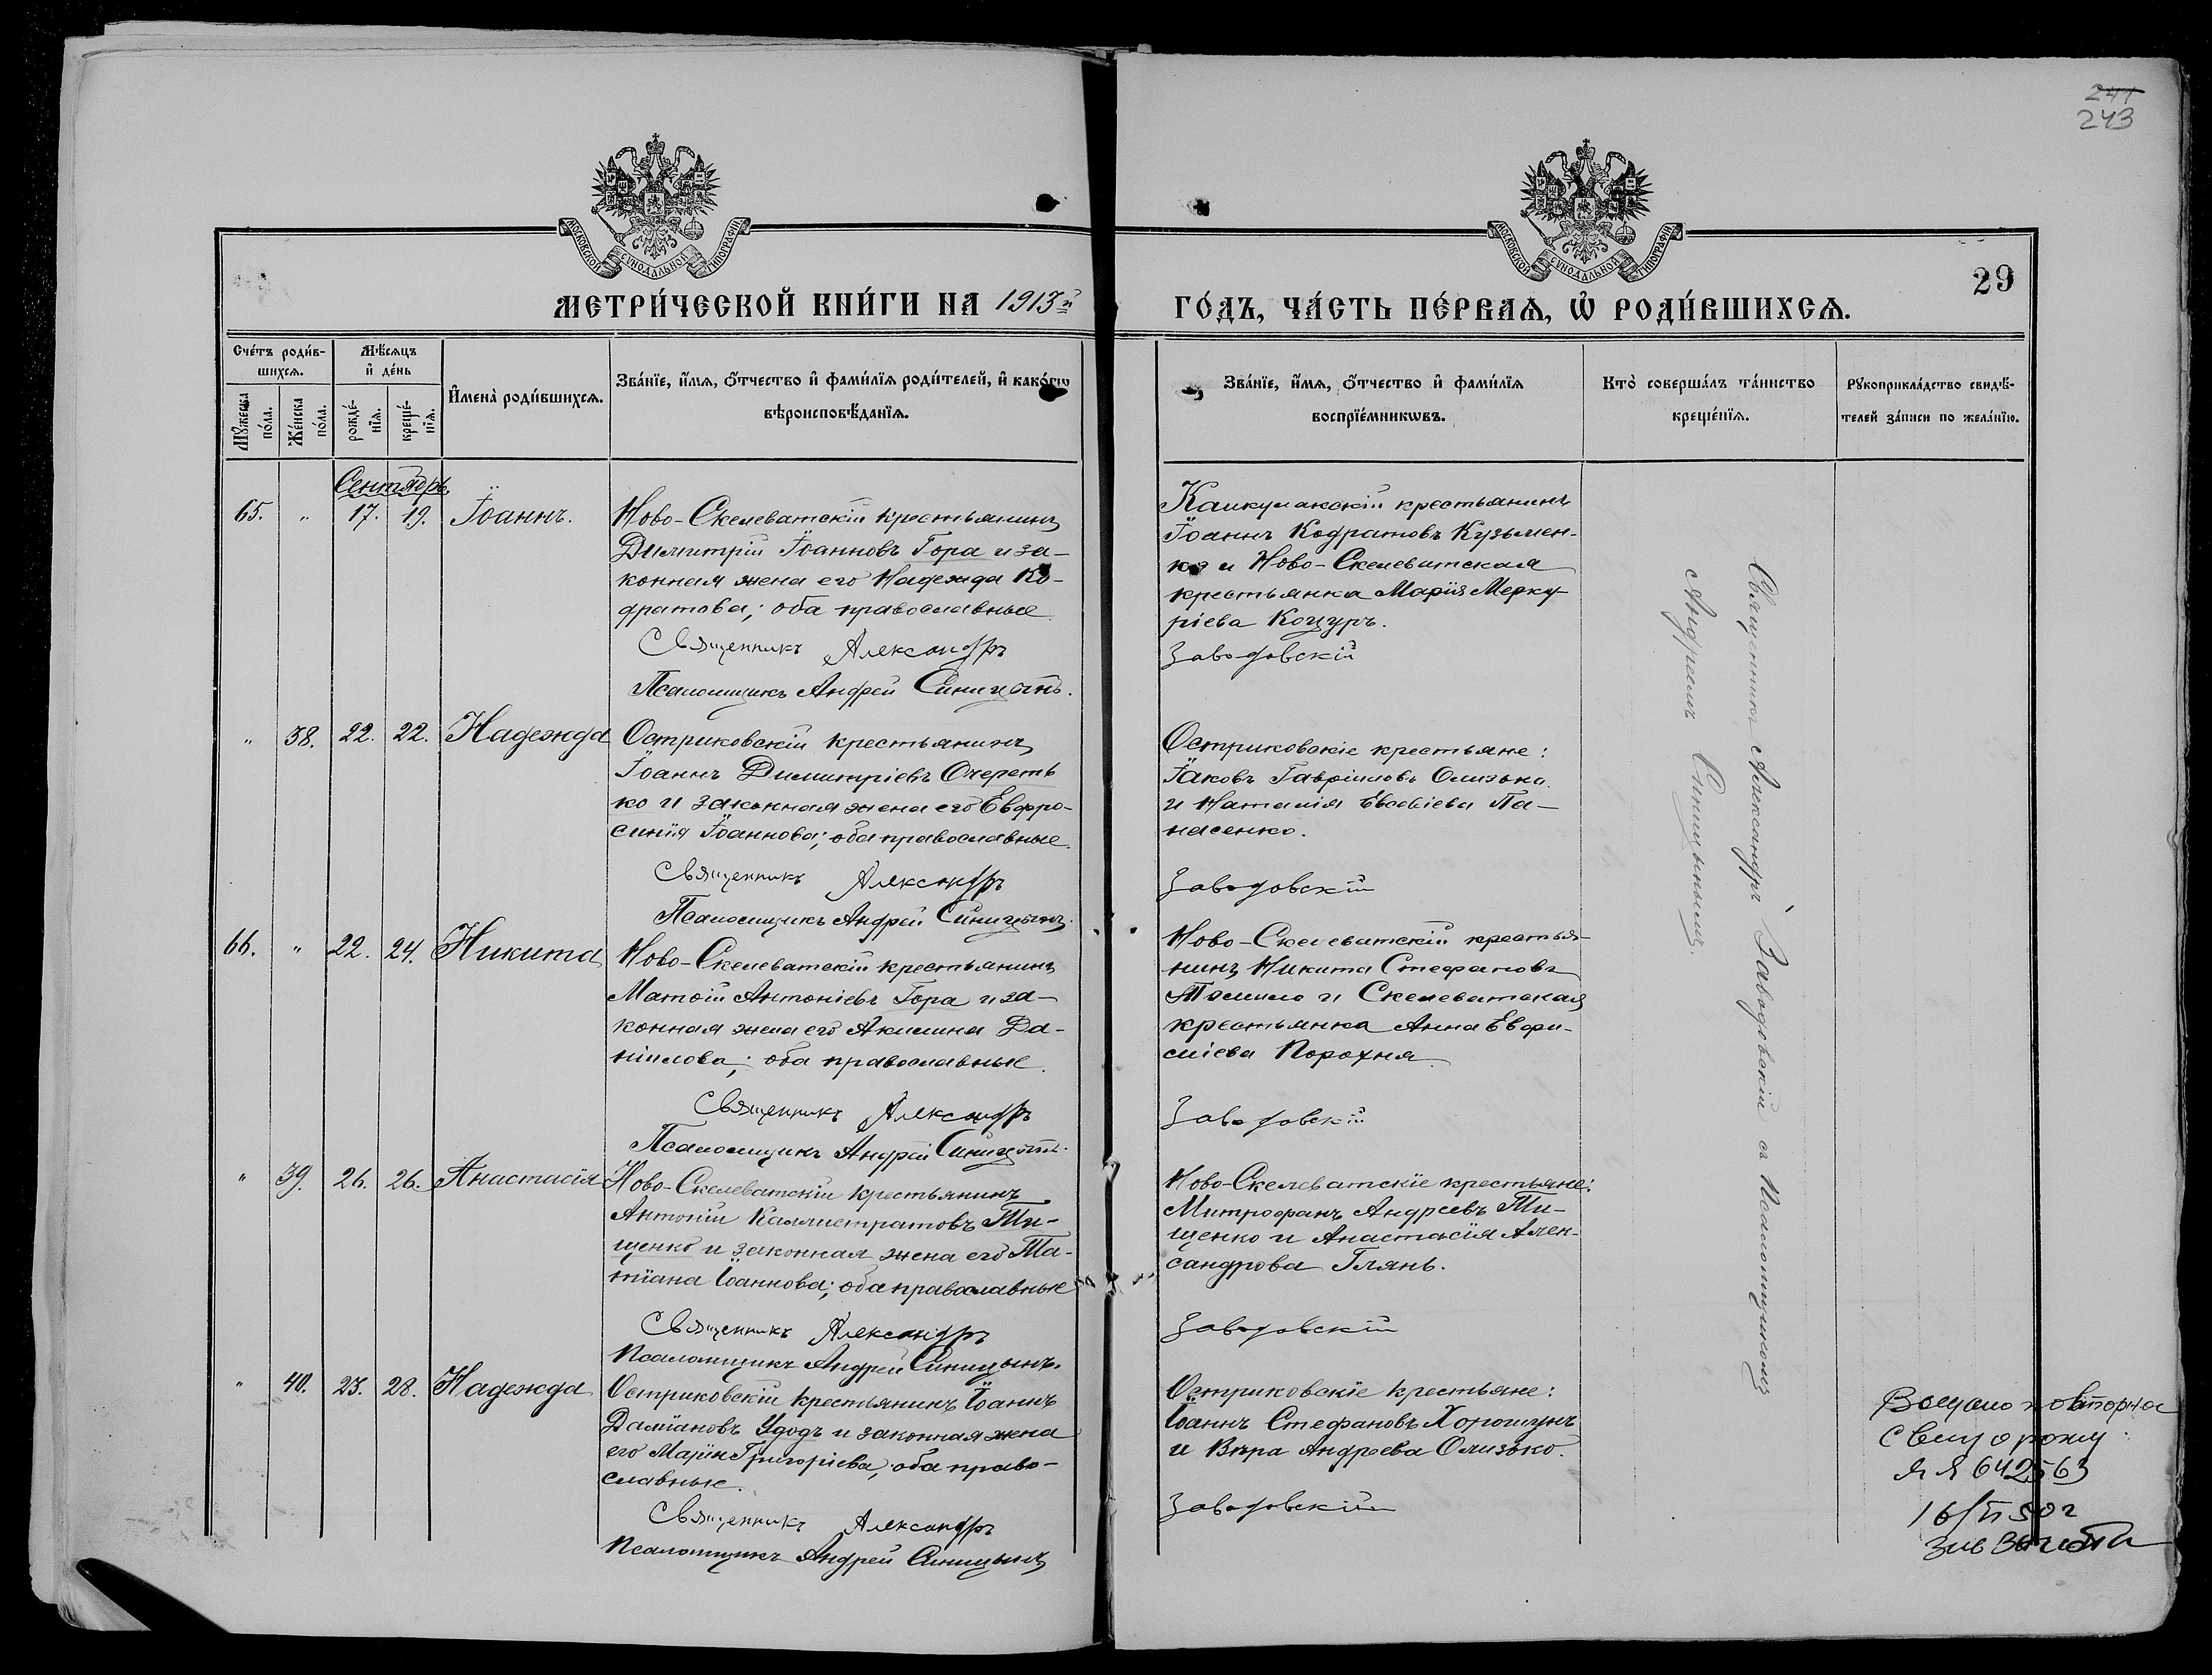 241
243
МОСКОВСКОЙ СѴНОДАЛЬНОЙ ТИПОГРАФІИ
МОСКОВСКОЙ СѴНОДАЛЬНОЙ ТИПОГРАФІИ
29
МЕТРИ́ЧЕСКОЙ КНИ́ГИ НА 1913й ГО́ДЪ, ЧА́СТЬ ПЕ́РВАѦ, Ѽ РОДИ́ВШИХСѦ.
Сче́тъ роди́в-
шихсѧ.
Мѣ́сѧцъ
и҆ де́нь
Мꙋ́жеска по́ла.
Же́нска по́ла.
рожде́-
нїѧ.
креще́-
нїѧ.
И҆мена̀ роди́вшихсѧ.
Зва́нїе, и҆́мѧ, ѻ҆́тчество и҆ фами́лїѧ роди́телей, и҆ како́гѡ
вѣроисповѣ́данїѧ.
Зва́нїе, и҆́мѧ, ѻ҆́тчество и҆ фами́лїѧ
воспрїе́мникѡвъ.
Кто̀ соверша́лъ та́инство
креще́нїѧ.
Рꙋкоприкла́дство свидѣ́-
телей за́писи по жела́нїю.
Сентябрь
65. " 17. 19. Іоаннъ.
Ново-Скелеватскій крестьянинъ
Димитрій Іоанновъ Гора и за-
конная жена его Надежда Ко-
дратова; оба православные
Священникъ Александръ
Псаломщикъ Андрей Синицынъ.
Каикулакскій крестьянинъ
Іоаннъ Кодратовъ Кузьмен-
ко и Ново-Скелеватская
крестьянка Марія Мерку-
ріева Коцуръ.
Заводовскій
" 38. 22. 22. Надежда
Остриковскій крестьянинъ
Іоаннъ Димитріевъ Очереть
ко и законная жена его Евфро-
синія Іоаннова; оба православные.
Священникъ Александръ
Псаломщикъ Андрей Синицынъ.
Остриковскіе крестьяне:
Іаковъ Гавріиловъ Олизько
и Наталія Евсевіева Па-
насенко.
Заводовскій
66. " 22. 24. Никита
Ново-Скелеватскій крестьянинъ
Матѳій Антоніевъ Гора и за-
конная жена его Акилина Да-
ніилова; оба православные.
Священникъ Александръ
Псаломщикъ Андрей Синицынъ.
Ново-Скелеватскій крестья-
нинъ Никита Стефановъ
Томило и Скелеватская
крестьянка Анна Евфи-
міева Порохня.
Заводовскій
" 39. 26. 26. Анастасія
Ново-Скелеватскій крестьянинъ
Антоній Каллистратовъ Ти-
щенко и законная жена его Та-
тіана Іоаннова; оба православные
Священникъ Александръ
Псаломщикъ Андрей Синицынъ.
Ново-Скелеватскіе крестьяне:
Митрофанъ Андреевъ Ти-
щенко и Анастасія Алек-
сандрова Глянь.
Заводовскій
" 40. 23. 28. Надежда
Остриковскій крестьянинъ Іоаннъ
Даміановъ Удодъ и законная жена
его Марія Григоріева; оба право-
славные.
Священникъ Александръ
Псаломщикъ Андрей Синицынъ
Остриковскіе крестьяне:
Іоаннъ Стефановъ Хорошунъ
и Вѣра Андреева Олизько.
Заводовскій
Священникъ Александръ Заводовскій съ Псаломщикомъ
Андреемъ Синицынымъ.
повторное
642563